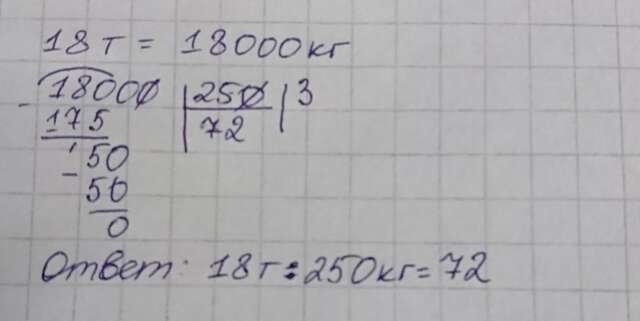 18 т = 18000кг
18000 | 250 | 3
175 | 72
50
50
0
Ответ: 18т : 250кг = 72